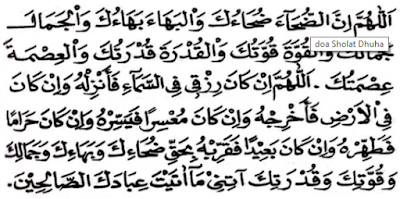 اَللّٰهُمَّ اِنَّ الضُّحَآءَ ضُحَاءُكَ وَالْبَهَاءَ بَهَاءُكَ وَالْجَمَالَ
جَمَالُكَ وَالْقُوَّةَ قُوَّتُكَ وَالْقُدْرَةَ قُدْرَتُكَ وَالْعِصْمَةَ
doa Sholat Dhuha
عِصْمَتُكَ. اَللّٰهُمَّ اِنْ كَانَ رِزْقِى فِى السَّمَآءِ فَأَنْزِلْهُ وَاِنْ كَانَ
فِى اْلاَرْضِ فَأَخْرِجْهُ وَاِنْ كَانَ مُعْسِرًا فَيَسِّرْهُ وَاِنْ كَانَ حَرَامًا
فَطَهِّرْهُ وَاِنْ كَانَ بَعِيْدًا فَقَرِّبْهُ بِحَقِّ ضُحَاءِكَ وَبَهَاءِكَ وَجَمَالِكَ
وَقُوَّتِكَ وَقُدْرَتِكَ آتِنِىْ مَآاَتَيْتَ عِبَادَكَ الصَّالِحِيْنَ.